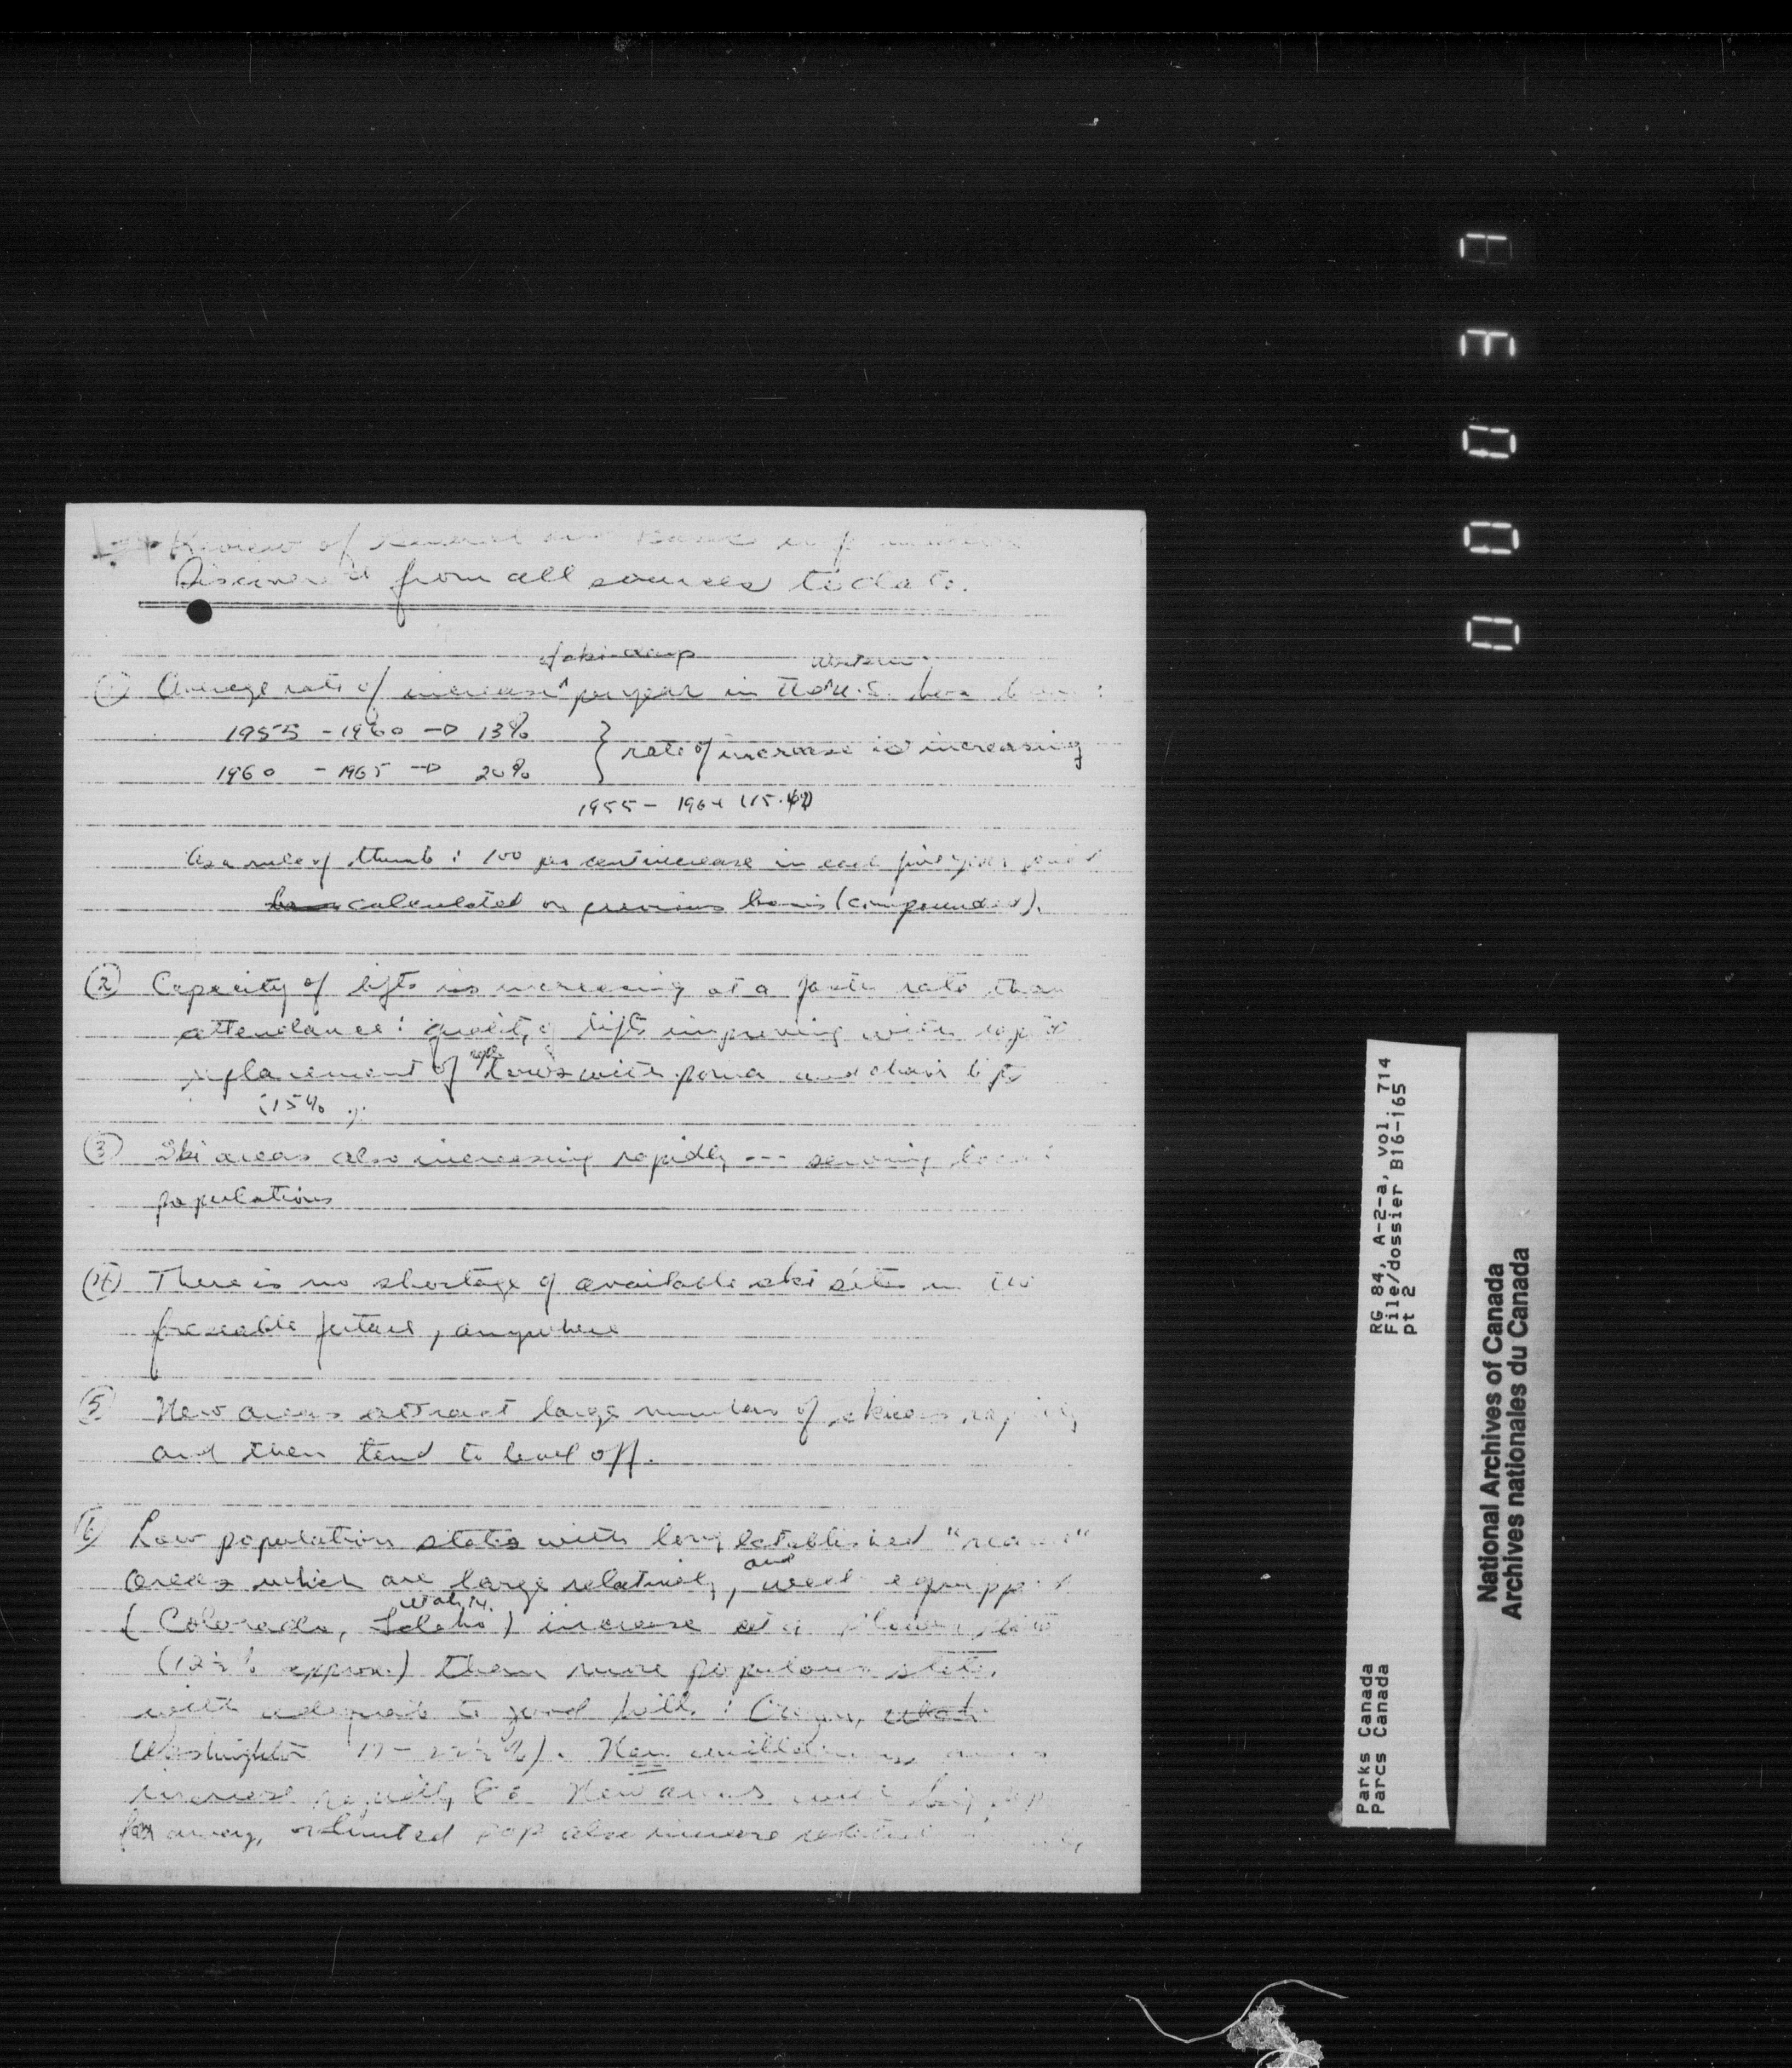 Review of General and Basic information
Discovered from all sources to date.
of ski days western
① Average rate of increase ^ per year in the U.S. has been:
1955 - 1960 → 13%
1960 - 1965 → 20%
} rate of increase is increasing
1955 - 1964 (15.
As a rule of thumb: 100 per cent increase in each five year period
calculated on previous basis (compounded).
② Capacity of lifts is increasing at a faster rate than
attendance: quality of lifts improving with rapid
replacement of rope tows with poma and chair lifts
(15%
③ Ski areas also increasing rapidly --- serving local
populations
④ There is no shortage of available ski sites in the
foreseable future, anywhere
⑤ New areas attract large numbers of skiers rapidly
and then tend to level off.
⑥ Low population states with long established
and
areas which are large relatively, well equipped
Utah,
(Colorado, Idaho) increase at a slower rate
(12½% approx.) than more populous states
with adequate to good hills: Oregon, Utah
Washington 17 - 22½%). New
increase rapidly New areas with big pop
far away, or limited pop also increase
RG 84, A-2-a, vol. 714
File/dossier B16-165
pt 2
Parks Canada
Parcs Canada
National Archives of Canada
Archives nationales du Canada